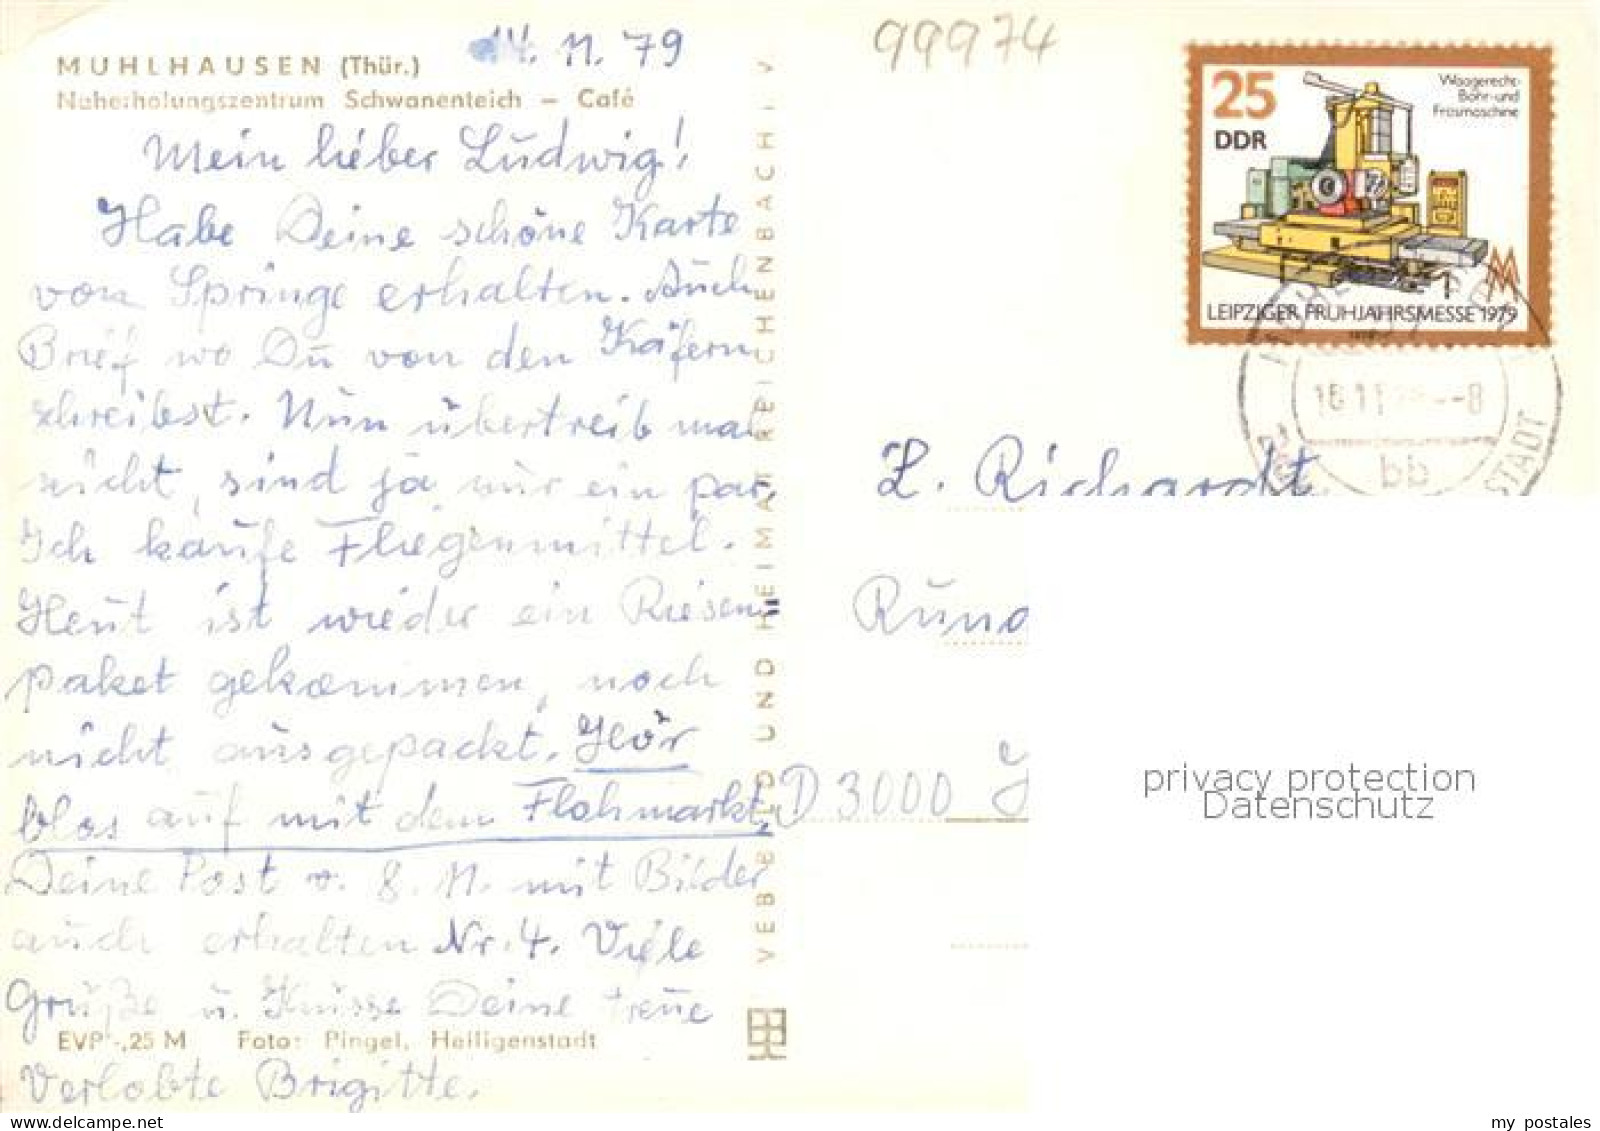 MUHLHAUSEN (Thür.)
Naherholungszentrum Schwanenteich – Café
14. 11. 79
Mein lieber Ludwig!
Habe Deine schöne Karte
von Springe erhalten. Auch
Brief wo Du von den Käfern
schreibst. Nun übertreib mal
nicht, sind ja nur ein paar.
Ich kaufe Fliegenmittel.
Heut ist wieder ein Riesen
paket gekommen, noch
nicht ausgepackt. Hör
blos auf mit dem Flohmarkt.
Deine Post v. 8. 11. mit Bilder
auch erhalten Nr. 4. Viele
Grüße u. Küsse Deine treue
Verlobte Brigitte.
EVP -,25 M Foto: Pingel, Heiligenstadt
VEB BILD UND HEIMAT REICHENBACH I. V
99974
25
DDR
Waagerecht-
Bohr- und
Fräsmaschine
LEIPZIGER FRÜHJAHRSMESSE 1979
-8
bb
STADT
L. Richardt
D 3000
privacy protection
Datenschutz
my postales